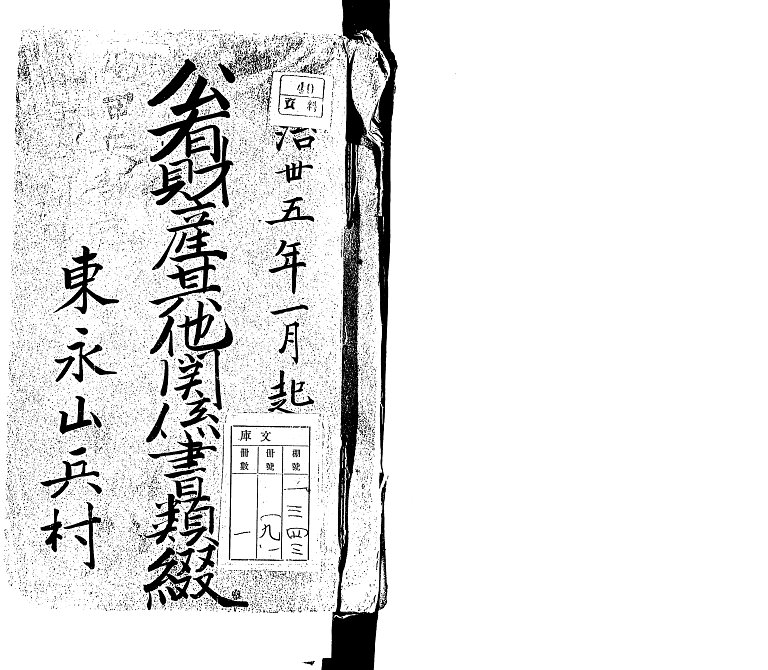 40
資料
治丗五年一月起
公有財産其他関係書類綴
東永山兵村
文庫
棚號
冊號
冊數
一三四三
(九)
一